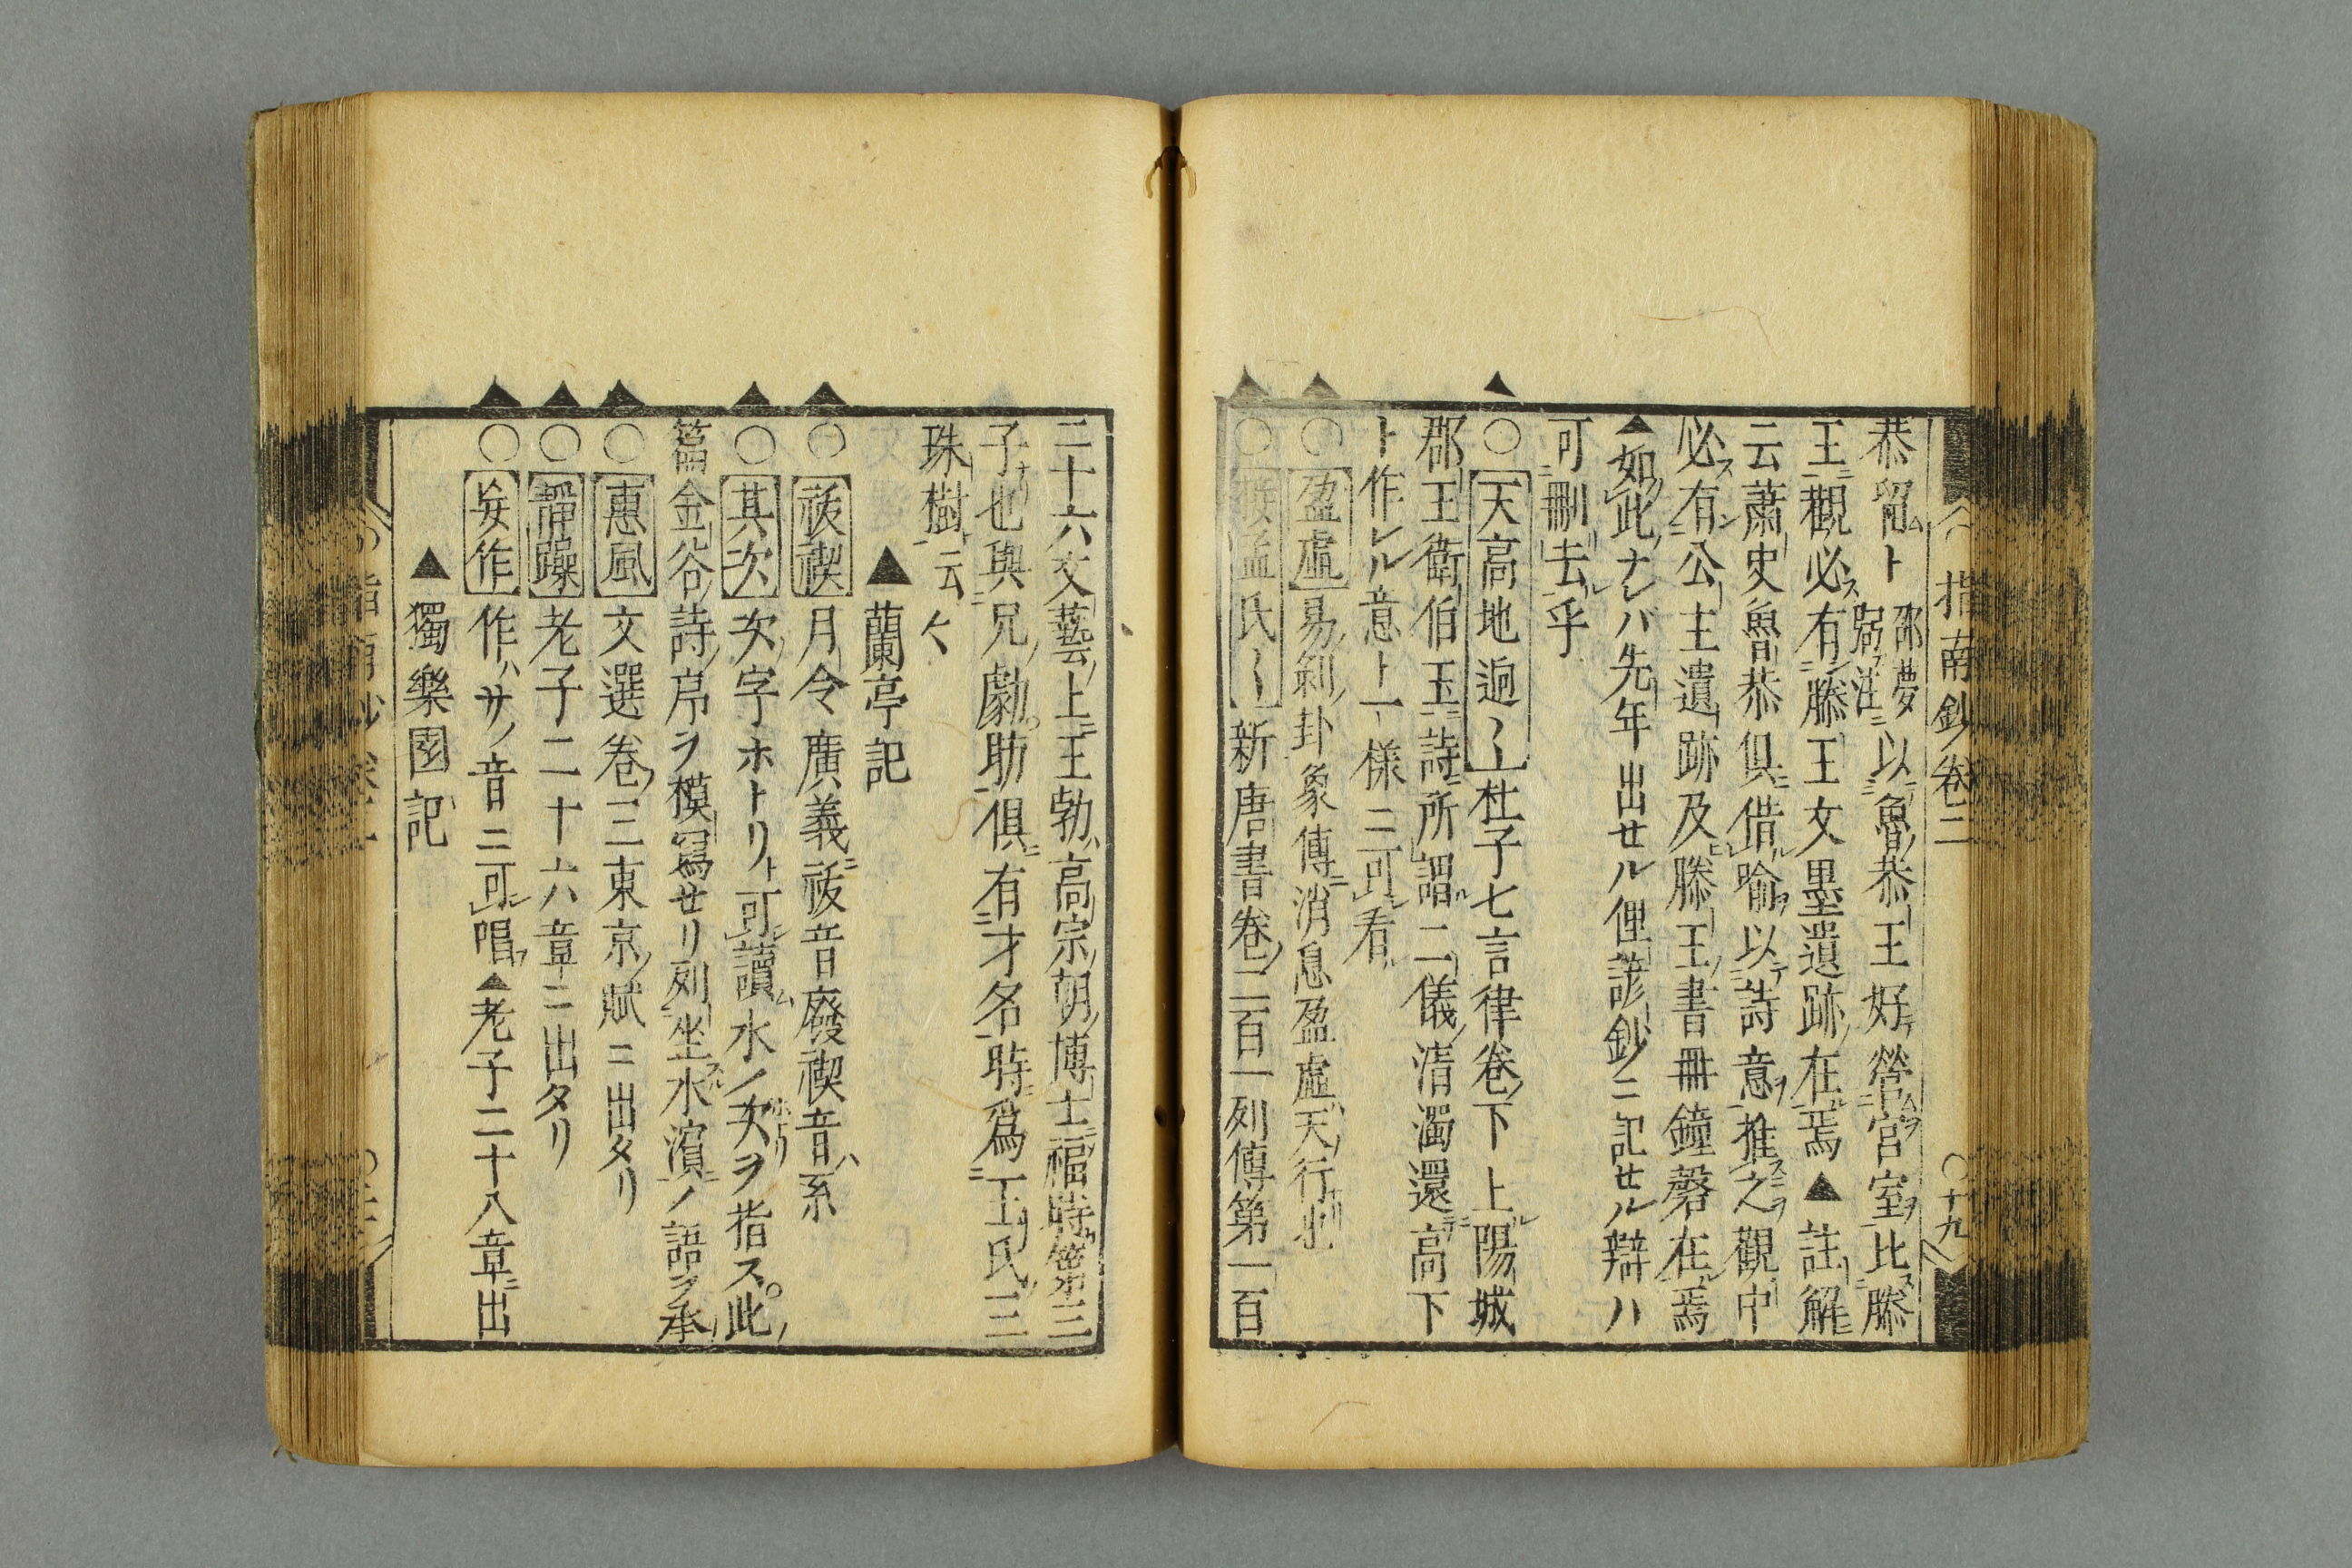 指南鈔卷二 〇十九
恭留ト 邵夢弼注 以魯恭王好營宮室比滕
王觀必有滕王文墨遺跡在焉▲註解
云蕭史魯恭俱借喻以詩意推之觀中
必有公主遺跡及滕王書冊鐘磬在焉
▲如此ナレバ先年出セル俚諺鈔ニ記セル辯ハ
可刪去乎
〇天高地迥〱杜子七言律卷下上陽城
郡王衛伯玉詩所謂二儀清濁還高下
ト作レル意ト一樣ニ可看
〇盈虛易剝卦象傳消息盈虛天行也
〇接孟氏〱新唐書卷二百一列傳第一百
二十六文藝上王勃高宗朝博士福時第三
子也與兄勮助俱有才名時爲王氏三
珠樹云〻
▲蘭亭記
〇祓禊月令廣義祓音廢禊音系
〇其次次字ホトリト可讀水ノ次ヲ指ス此
篇金谷詩序ヲ模寫セリ列坐水濱ノ語ヲ承
〇惠風文選卷三東京賦ニ出タリ
〇靜躁老子二十六章ニ出タリ
〇妄作作ハサノ音ニ可唱▲老子二十八章出
▲獨樂園記